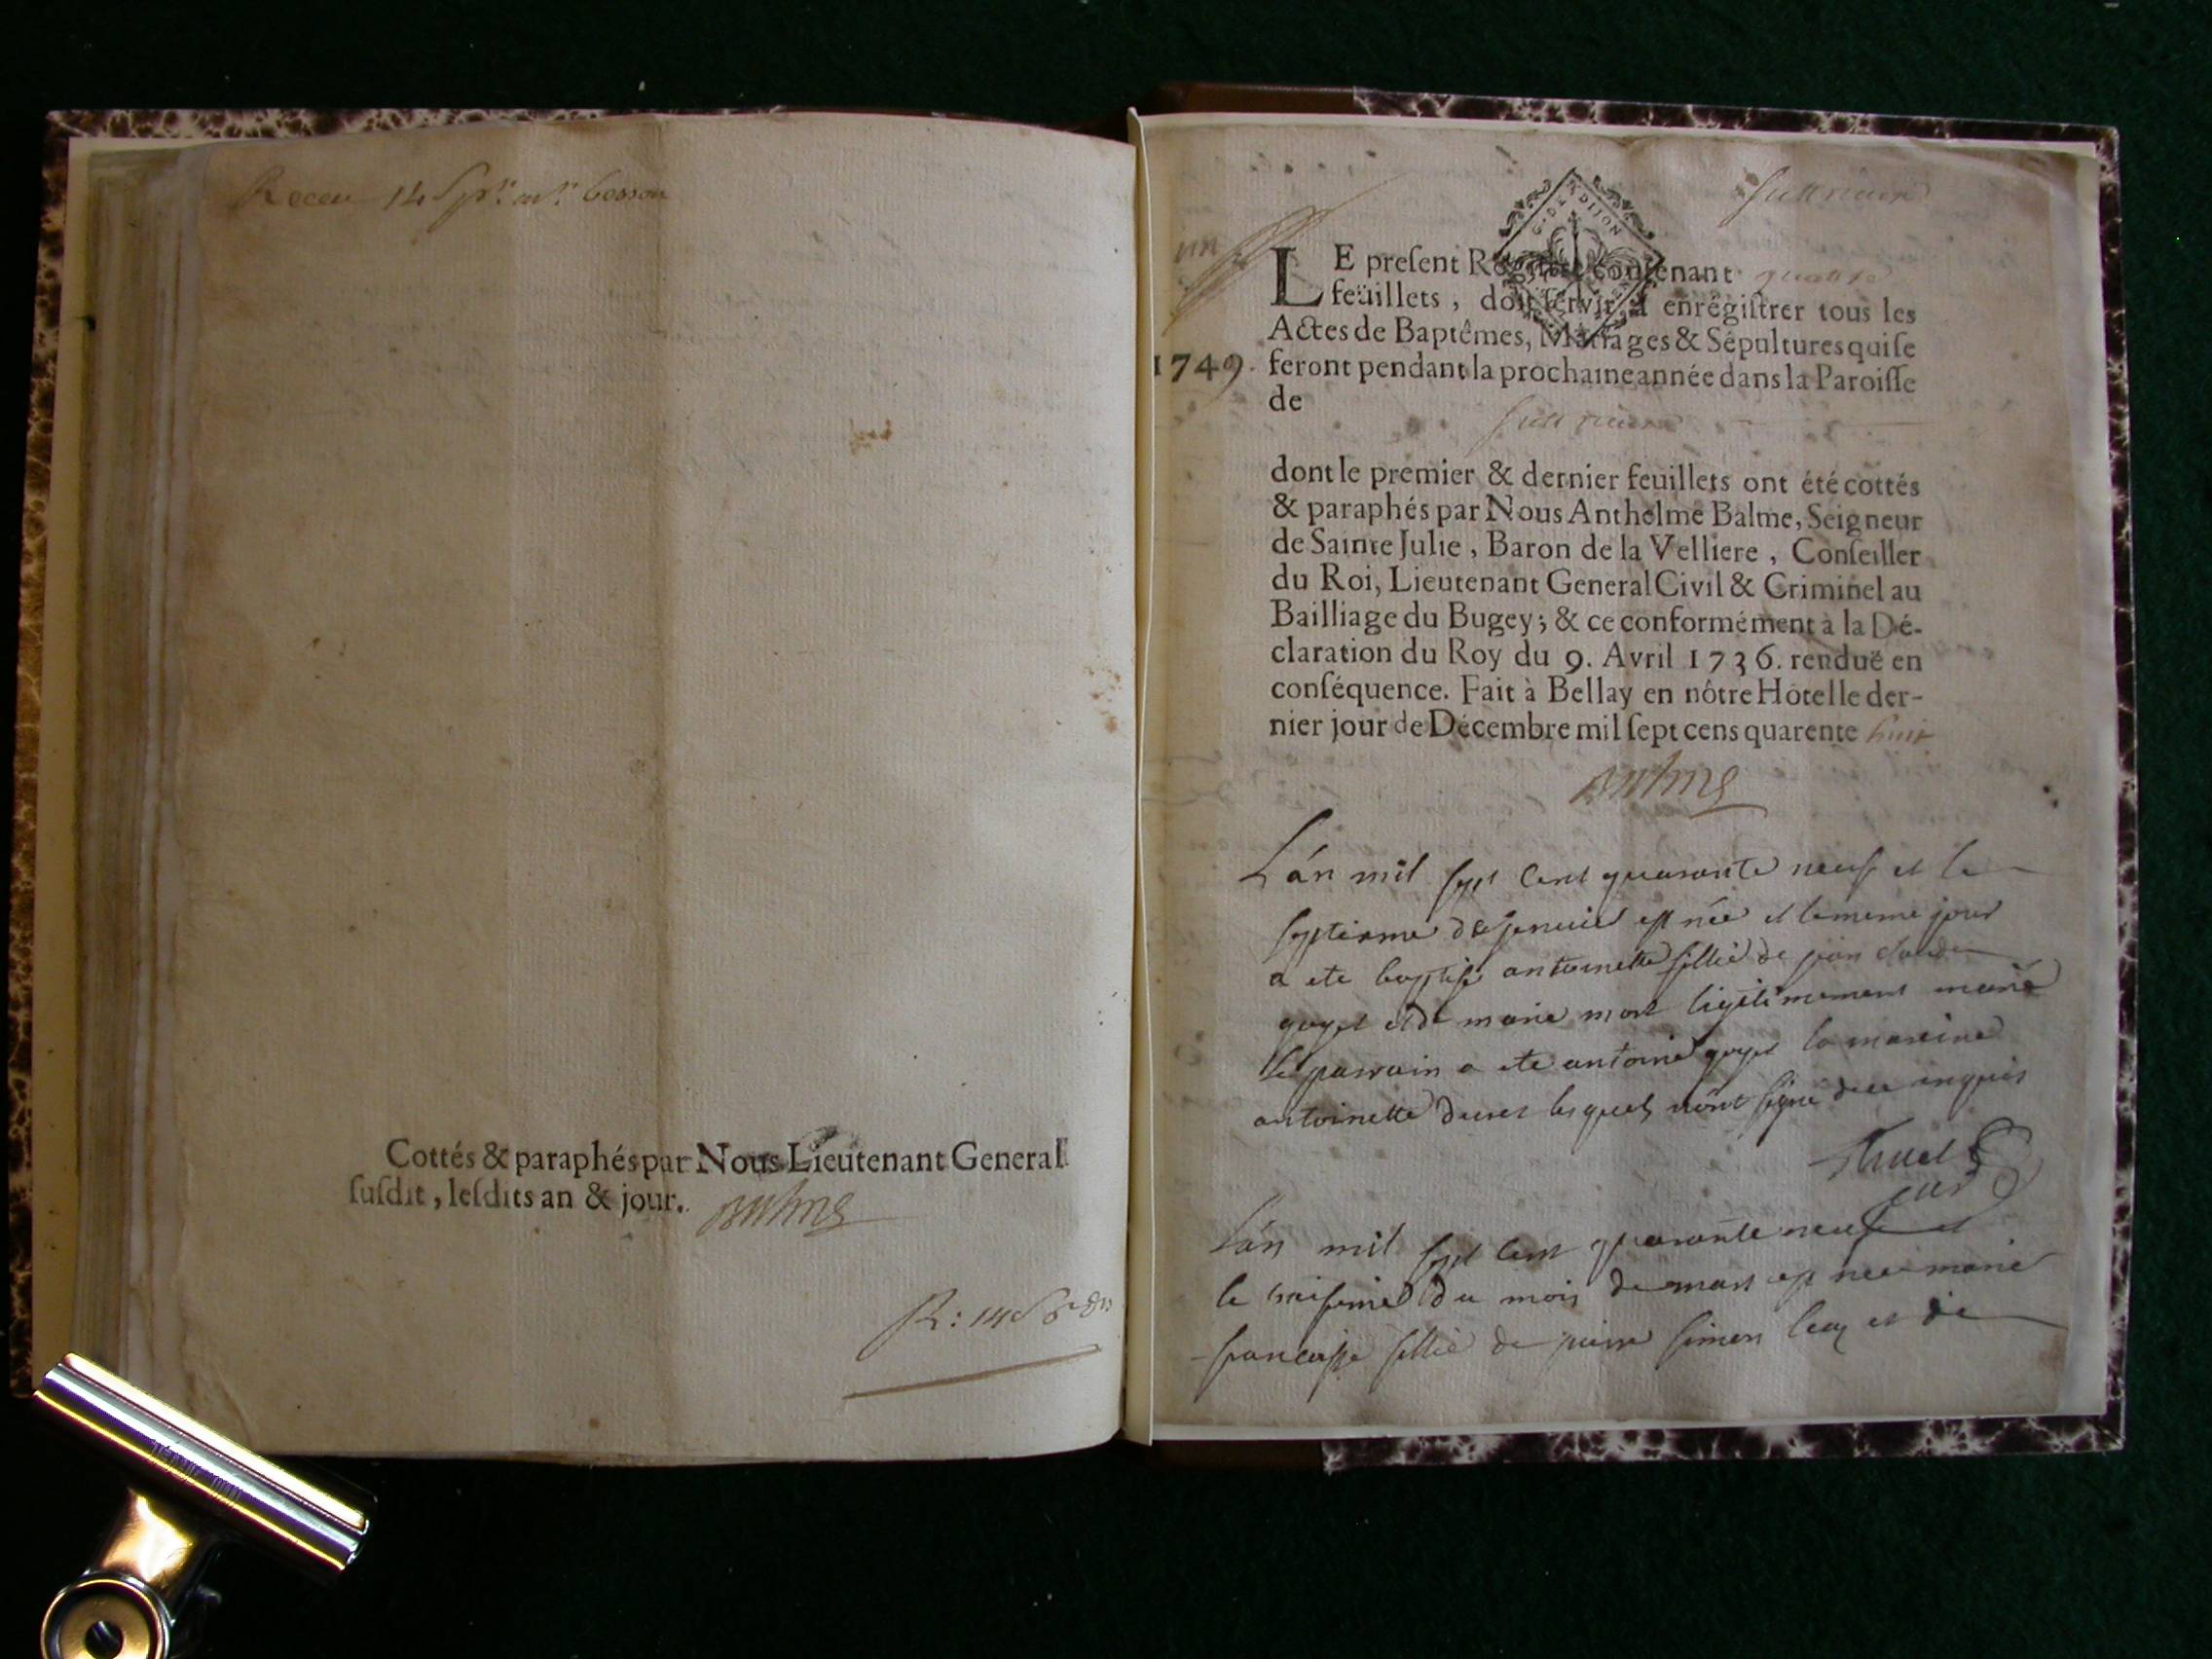 Receu 14
Cottés & paraphés par Nous Lieutenant General
ſuſdit, leſdits an & jour.
R: 14
un
G. DE DIJON
LE preſent Regiſtre contenant quatre
feüillets, doit ſervir à enrégiſtrer tous les
Actes de Baptêmes, Mariages & Sépultures qui ſe
1749. feront pendant la prochaine année dans la Paroiſſe
de
dont le premier & dernier feuillets ont été cottés
& paraphés par Nous Anthelme Balme, Seigneur
de Sainte Julie, Baron de la Velliere, Conſeiller
du Roi, Lieutenant General Civil & Criminel au
Bailliage du Bugey; & ce conformément à la Dé-
claration du Roy du 9. Avril 1736. renduë en
conſéquence. Fait à Bellay en nôtre Hôtel le der-
nier jour de Décembre mil ſept cens quarente huit
Balme
L'án mil sept cent quarante neuf et le
septieme de jenvier est née et le meme jour
a ete baptisé antoinette fillie de jean claude
guyet et de marie mort ligitimement marié
le parrain a ete antoine guyet la mareine
antoinette lesquels n'ont signé de ce enquis
curé
L'án mil sept cent quarante neuf et
le du mois de mars est nee marie
francoise fillie de pierre simon et de